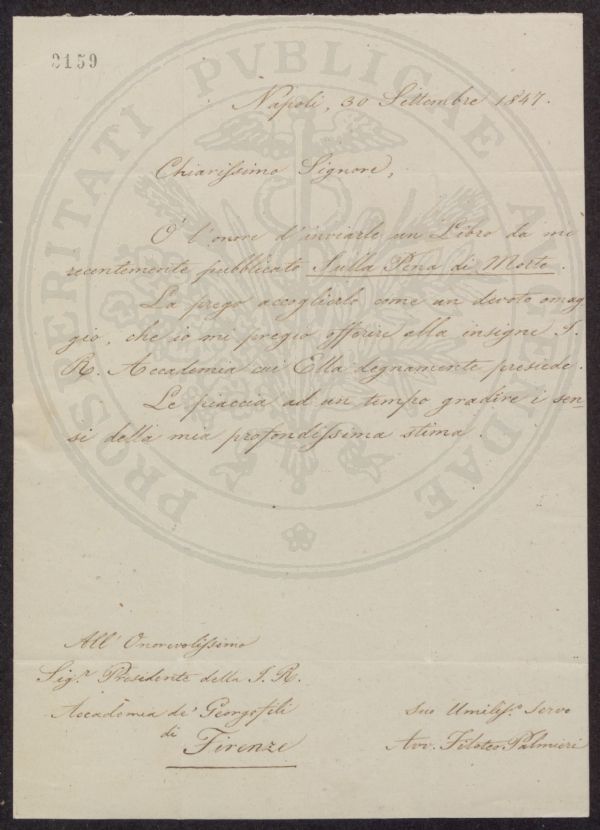 2159
PROSPERITATI PVBLICAE AVGENDAE
Napoli, 30 Settembre 1847.
Chiarissimo Signore,
O' l'onore d'inviarle un Libro da me
recentemente pubblicato Sulla Pena di Morte.
La prego accoglierlo come un devoto omag
gio, che io mi pregio offerire alla insigne I.
R. Accademia cui Ella degnamente presiede.
Le piaccia ad un tempo gradire i sen=
si della mia profondissima stima.
All' Onorevolissimo
Sig.r Presidente della I. R.
Accademia de' Georgofili
di
Firenze
Suo Umiliss.o Servo
Avv. Filoteo Palmieri